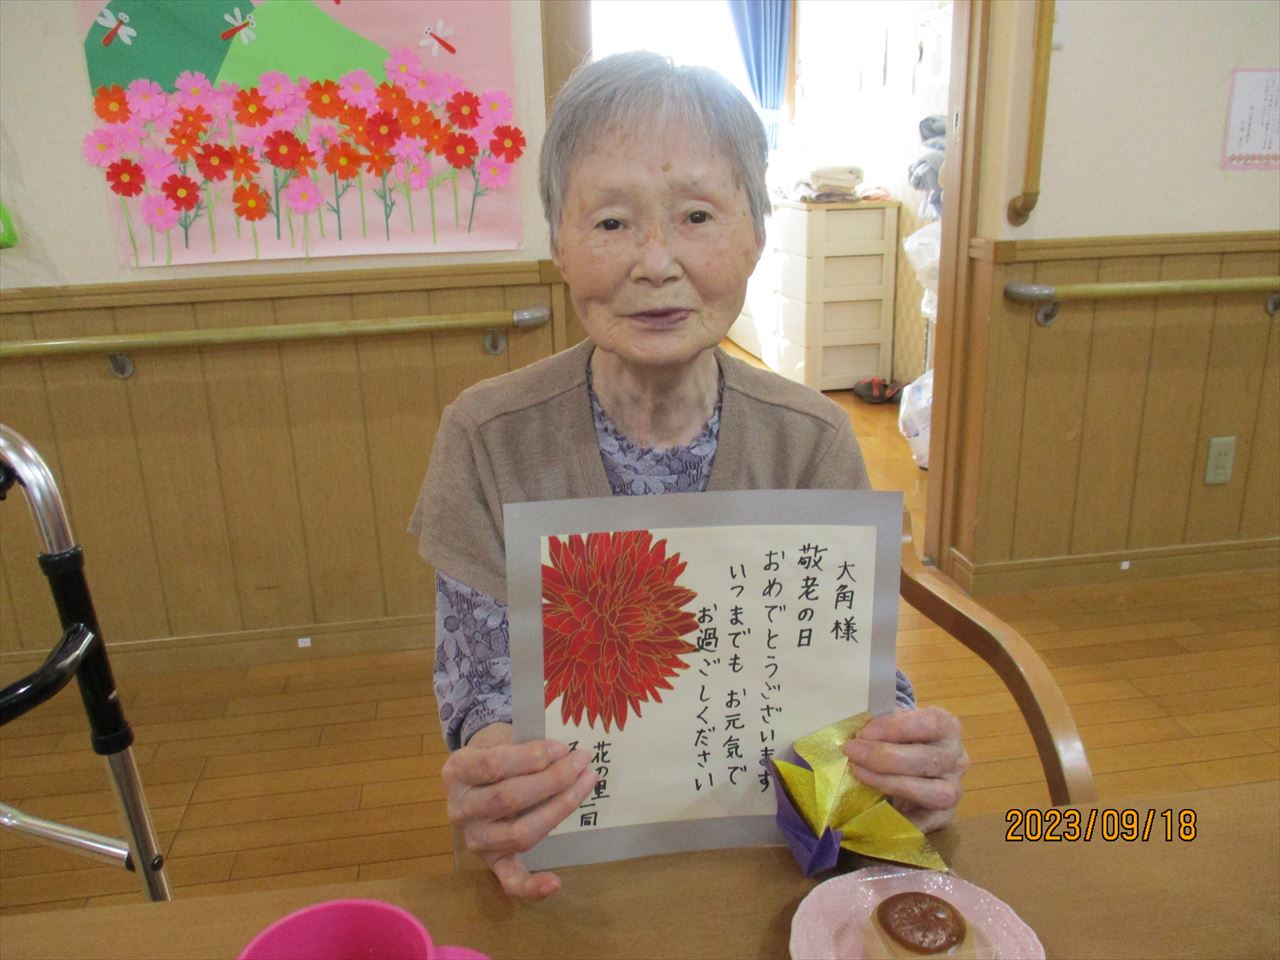 大角様
敬老の日
おめでとうございます
いつまでも お元気で
お過ごしください
花の里一同
2023/09/18